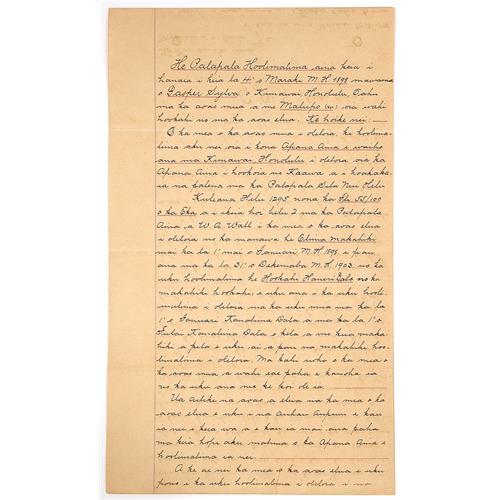 He Palapala Hoolimalima aina keia i
hanaia i keia la 4 o Maraki M.H. 1898 mawaena
o Gasper Sylva o Kunawai, Honolulu, Oahu
ma ka aoao mua a me Malupo (k) ona wahi
hookahi no ma ka aoao elua. Ke hoike nei:
O ka mea o ka aoao mua i oleloia, ke hoolima-
lima aku nei oia i kona Apana Aina e waiho
ana ma Kunawai, Honolulu i oleloia oia ka
Apana Aina i hookoia no Kaawa a i hoakaka-
ia na palena ma ka Palapala Sila Nui Helu
Kuleana Helu 1295 nona ka Ili 55/100
o ka Eka a i ikeia hoi helu 2 ma ka Palapala
Aina a W. A. Wall i ka mea o ka aoao elua
i oleloia no ka manawa he Elima Makahiki
mai ka la 1 mai o Ianuari M.H. 1899 e pau
ana ma ka la 31 o Dekemaba M.H. 1903 no ka
uku hoolimalima he Hookahi Haneri Dala no ka
makahiki hookahi, e uku ana i ka uku hooli-
malima i oleloia ma ka uku mua ma ka la
1 o Ianuari Kanalima Dala a ma ka la 1 o
Iulai Kanalima Dala o kela a me keia maka-
hiki a pela e uku ai a pau na makahiki hoo-
limalima i oleloia. Ma kahi noho o ka mea o
ka aoao mua a wahi eae paha i kauoha ia
no ka uku ana ma ke koi ole ia.
Ua aelike na aoao a elua na ka mea o ka
aoao elua e uku i na auhau Aupuni i kau
ia nei i keia wa a e kau ia mai ana paha
ma keia hope aku maluna o ka Apana Aina i
hoolimalima ia nei.
A ke ae nei ka mea o ka aoao elua e uku
pono i ka uku hoolimalima i oleloia i na